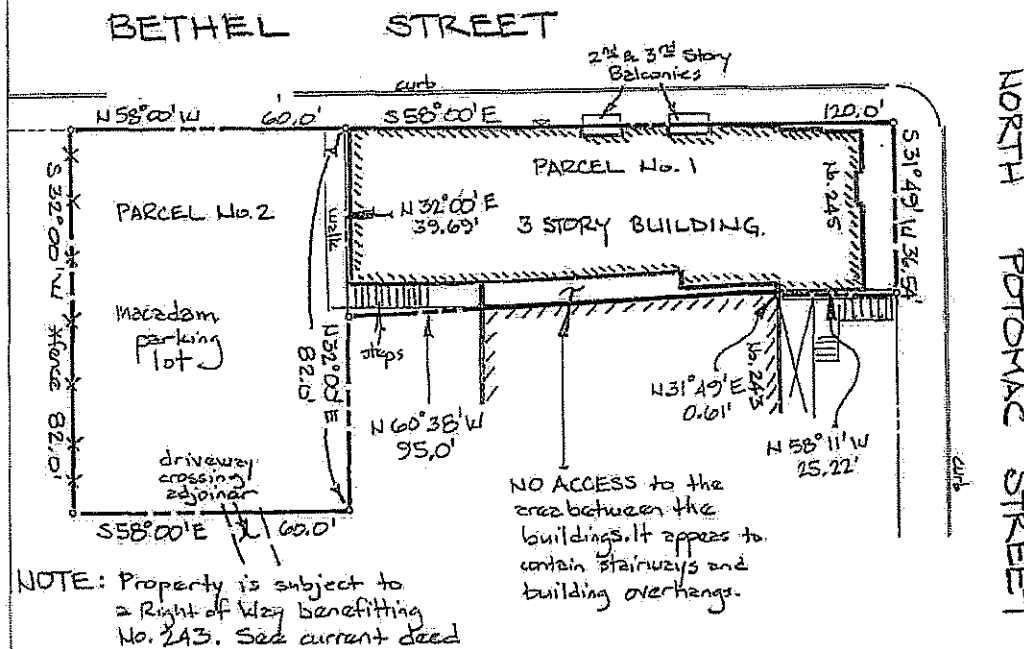 BETHEL STREET
2nd & 3rd Story
Balconies
curb
N 58°00' W 60.0'
S 58°00' E 120.0'
PARCEL No. 1
No. 245
S 31°49' W 36.54'
NORTH POTOMAC STREET
PARCEL No. 2
walk
N 32°00' E
39.69'
3 STORY BUILDING.
S 32°00' W *fence 82.0'
macadam
parking
lot
N 32°00' E
82.0'
steps
N 60°38' W
95.0'
N 31°49' E
0.61'
No. 243
N 58°11' W
25.22'
curb
driveway
crossing
adjoiner
S 58°00' E 60.0'
NO ACCESS to the
area between the
buildings. It appears to
contain stairways and
building overhangs.
NOTE: Property is subject to
a Right of Way benefitting
No. 243. See current deed